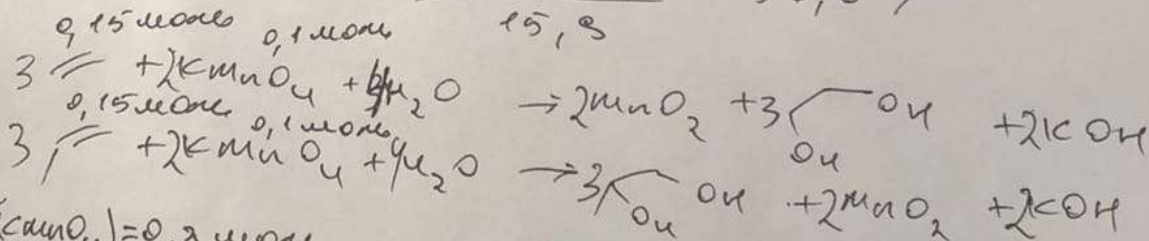 0,15 моль 0,1 моль 15,9
3 + 2KMnO4 + 4H2O → 2MnO2 + 3 OH OH + 2KOH
0,15 моль 0,1 моль
3 + 2KMnO4 + 4H2O → 3 OH OH + 2MnO2 + 2KOH
(KMnO4)=0,2 моль